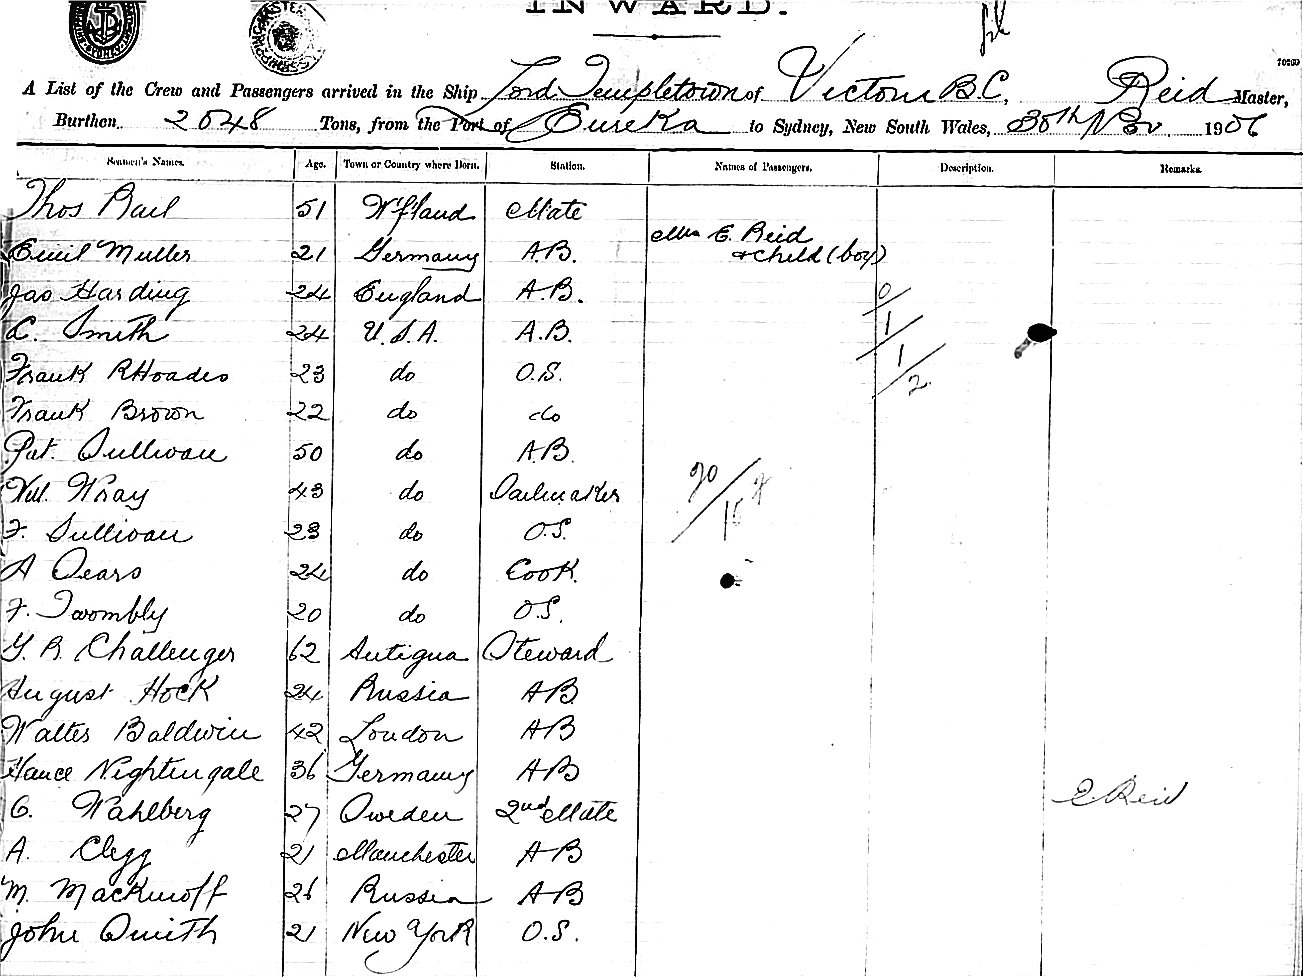 INWARD.
A List of the Crew and Passengers arrived in the Ship Lord Templetown of Victoria B.C, Reid Master,
Burthen 2048 Tons, from the Port of Eureka to Sydney, New South Wales, 30th Nov 1906
Seamen's Names. Age. Town or Country where Born. Station. Names of Passengers. Description. Remarks.
Thos Bail 51 N'f'land Mate
Mrs E. Reid
& child (boy)
Emil Muller 21 Germany A.B.
Jas Harding 24 England A.B.
0/
C. Smith 24 U.S.A. A.B.
1/
Frank RHoades 23 do O.S.
1/2
Frank Brown 22 do do
Pat. Sullivan 50 do A.B.
Wm. Wray 43 do Sailmaker
20/
F. Sullivan 23 do O.S.
A Sears 24 do Cook.
F. Twombly 20 do O.S.
G. B. Challenger 62 Antigua Steward
August Hock 24 Russia AB
Walter Baldwin 42 London AB
Hance Nightingale 36 Germany AB
E Reid
C. Wahlberg 27 Sweden 2nd Mate
A. Clegg 21 Manchester AB
M. Mackinoff 26 Russia AB
John Smith 21 New York O.S.